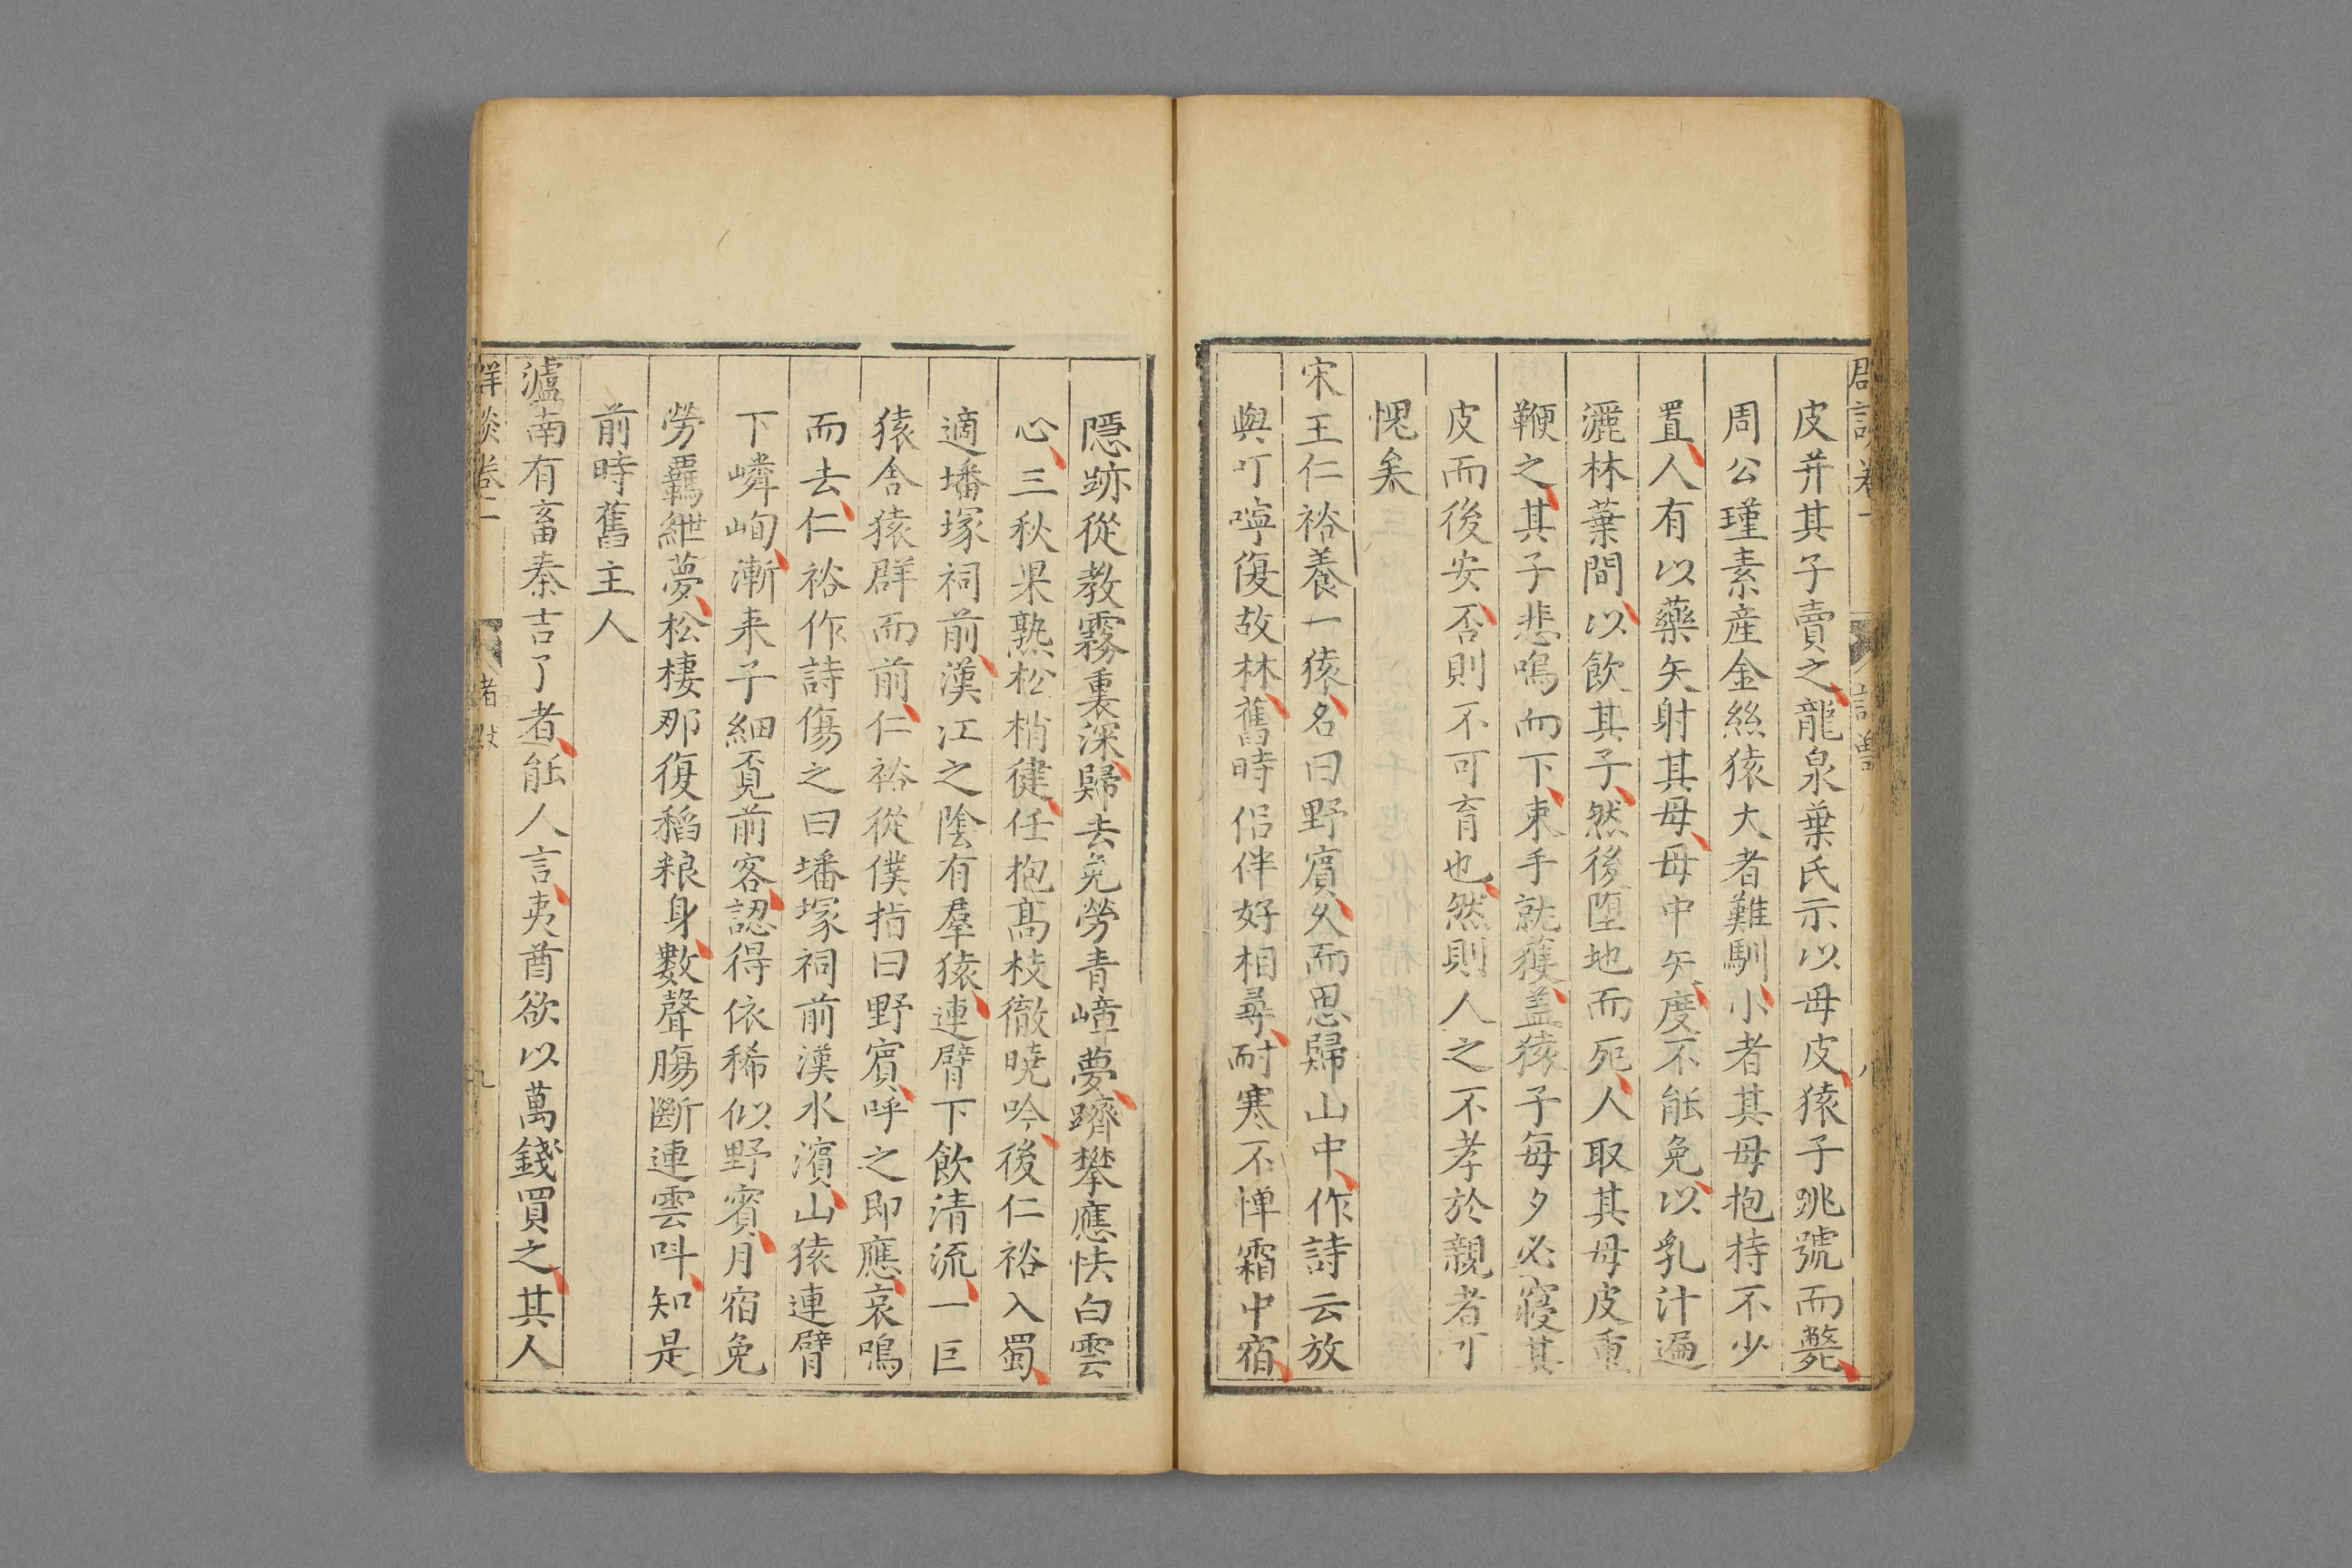 皮并其子賣之龍泉葉氏示以母皮猿子跳號而斃
周公瑾素産金絲猿大者難馴小者其母抱持不少
置人有以藥矢射其母母中矢度不能免以乳汁遍
灑林葉間以飲其子然後墮地而死人取其母皮重
鞭之其子悲鳴而下束手就獲盖猿子每夕必寢其
皮而後安否則不可育也然則人之不孝於親者可
愧矣
宋王仁裕養一猿名曰野賓久而思歸山中作詩云放
與叮嚀復故林舊時侶伴好相尋耐寒不憚霜中宿
隱跡從教霧裏深歸去免勞青嶂夢躋攀應怯白雲
心三秋果熟松梢健任抱高枝徹曉吟後仁裕入蜀
適墦塚祠前漢江之陰有羣猿連臂下飲清流一巨
猿舍猿群而前仁裕從僕指曰野賓呼之即應哀鳴
而去仁裕作詩傷之曰墦塚祠前漢水濱山猿連臂
下嶙峋漸来子細覓前客認得依稀似野賓月宿免
勞羈紲夢松棲那復稻粮身數聲膓斷連雲呌知是
前時舊主人
瀘南有畜秦吉了者能人言夷酋欲以萬錢買之其人